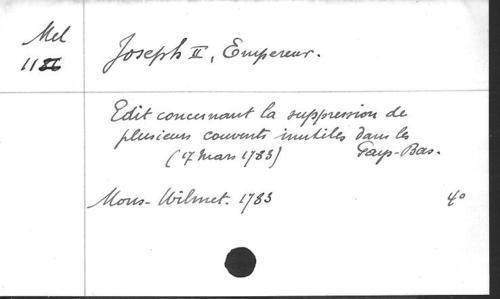 Mel
Joseph II, Empereur.
Edit concernant la suppression de
plusieurs couvents inutiles dans les
(17 mars 1783) Pays-Bas.
Mons - Wilmet. 1783 4°